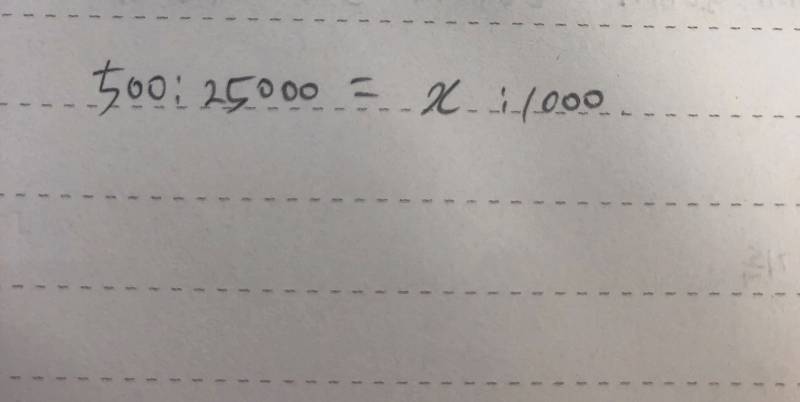 500 : 25000 = x : 1000